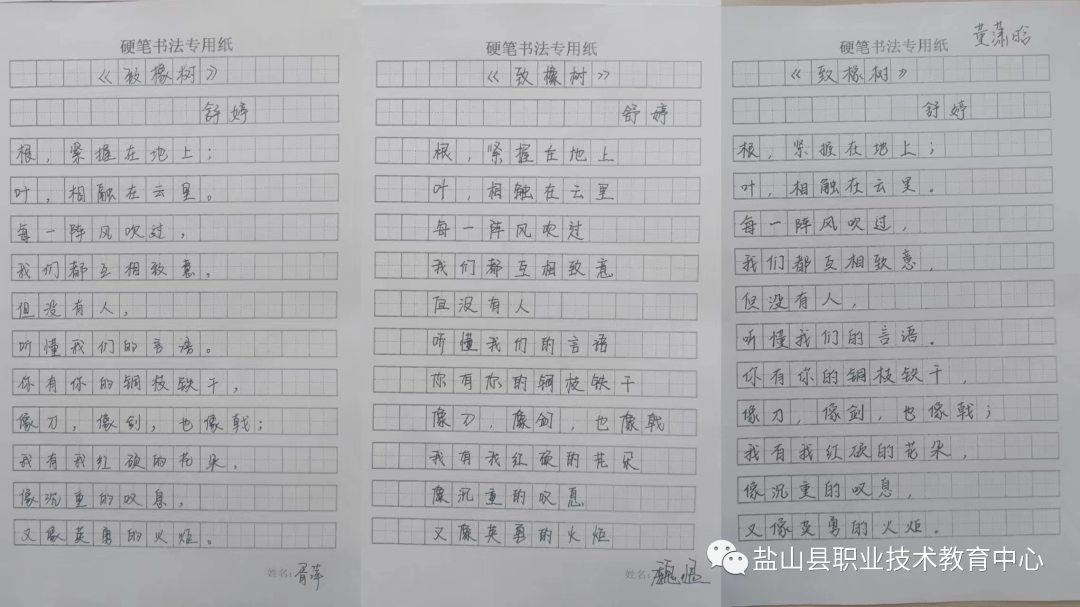 硬笔书法专用纸
《致橡树》
舒婷
根，紧握在地上；
叶，相融在云里。
每一阵风吹过，
我们都互相致意，
但没有人，
听懂我们的言语。
你有你的铜枝铁干，
像刀，像剑，也像戟；
我有我红硕的花朵，
像沉重的叹息，
又像英勇的火炬。
姓名：胥萍
硬笔书法专用纸
《致橡树》
舒婷
根，紧握在地上
叶，相触在云里
每一阵风吹过
我们都互相致意
但没有人
听懂我们的言语
你有你的铜枝铁干
像刀，像剑，也像戟
我有我红硕的花朵
像沉重的叹息
又像英勇的火炬
姓名：
硬笔书法专用纸
黄潇晗
《致橡树》
舒婷
根，紧握在地上；
叶，相触在云里。
每一阵风吹过，
我们都互相致意，
但没有人，
听懂我们的言语。
你有你的铜枝铁干，
像刀，像剑，也像戟；
我有我红硕的花朵，
像沉重的叹息，
又像英勇的火炬。
盐山县职业技术教育中心